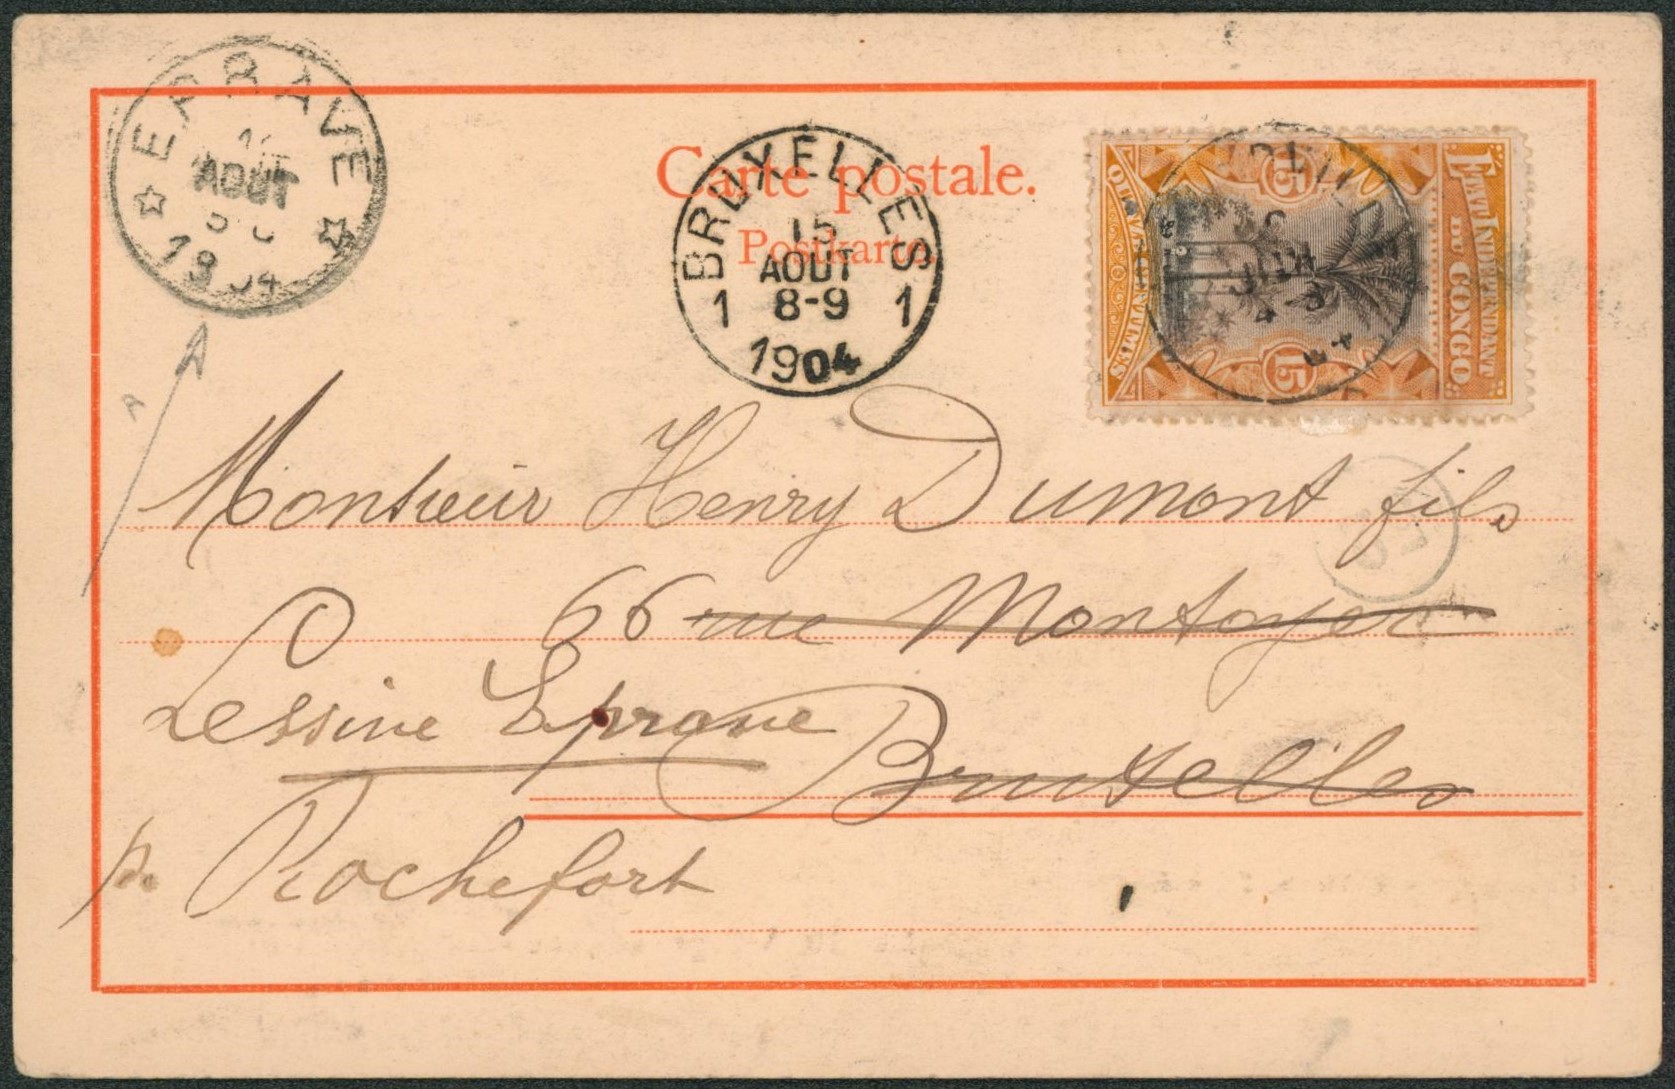 EPRAVE
AOUT
1904
Carte postale.
Postkarte.
BRUXELLES
15
AOUT
1 8-9 1
1904
ETAT INDÉPENDANT
DU CONGO
15
15
QUINZE CENTIMES
Monsieur Henry Dumont fils
66 rue Montoyer
Lessive Eprave
Bruxelles
pr. Rochefort